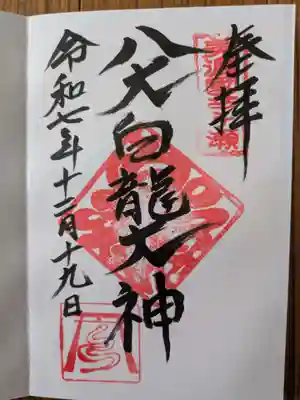 奉拝
八大白龍大神
令和七年十二月十九日